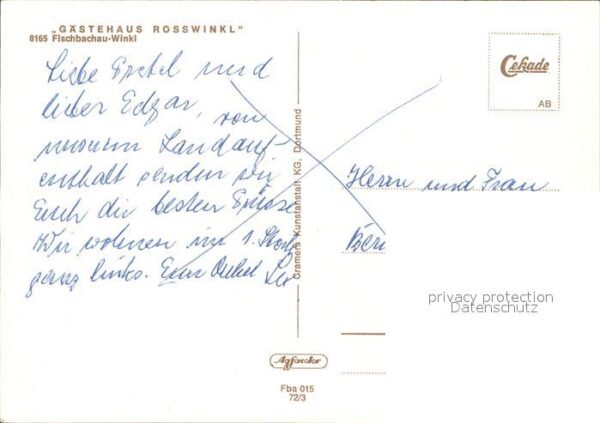 „GÄSTEHAUS ROSSWINKL"
8165 Fischbachau-Winkl
Liebe Gretel und
lieber Edgar, von
unserem Landauf-
enthalt senden wir
Euch die besten Grüsse
Wir wohnen im 1. Stock
ganz links. Euer Onkel Leo
Cramers Kunstanstalt KG, Dortmund
Cekade
AB
Herrn und Frau
privacy protection
Datenschutz
Agfacolor
Fba 015
72/3